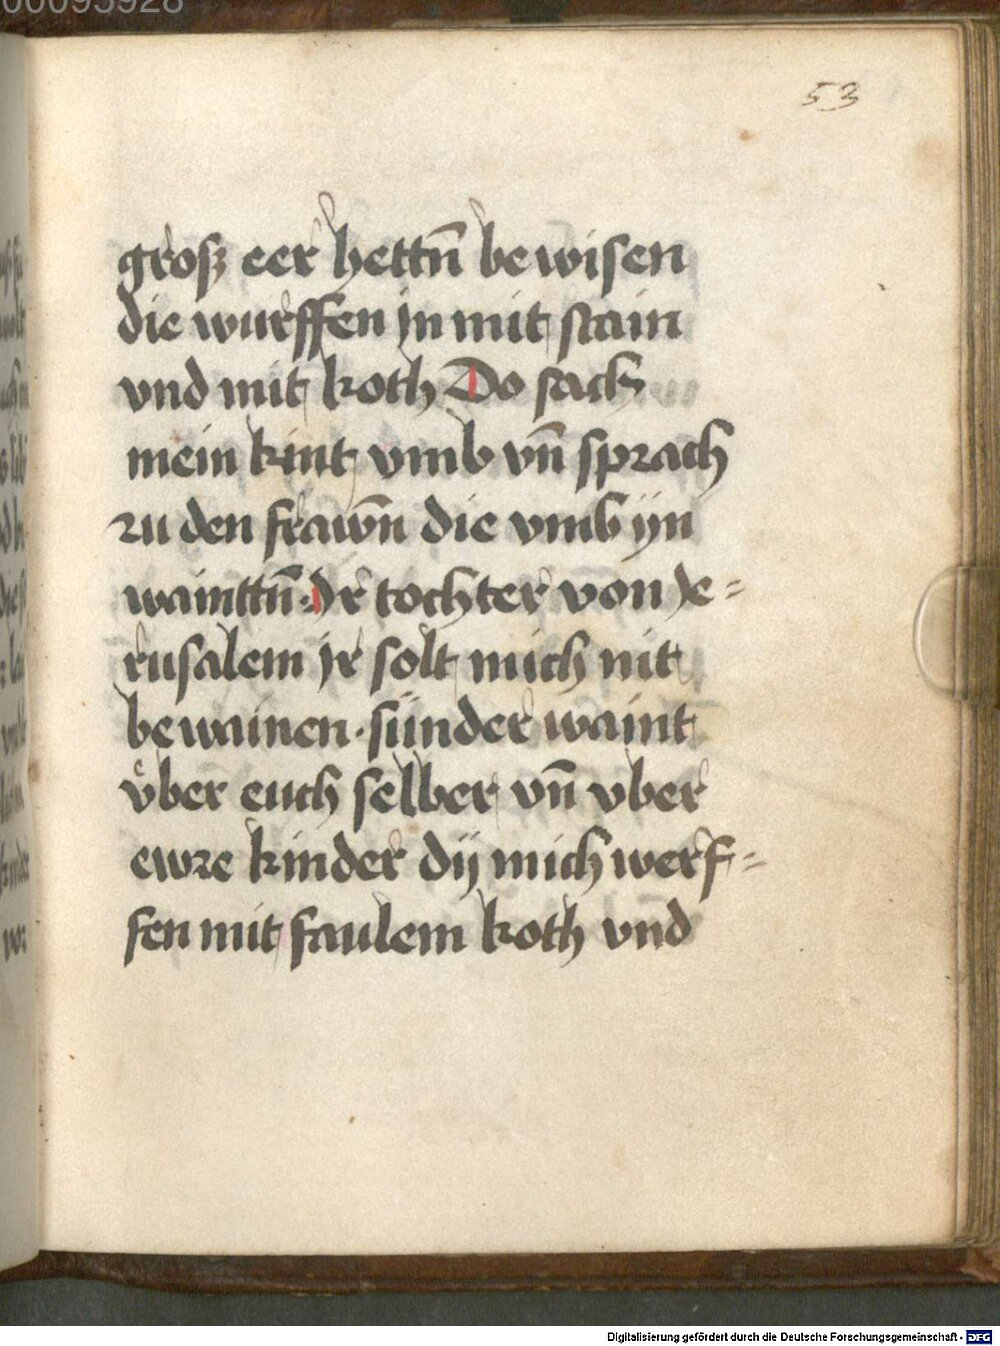 00095928
53
grosz eer hettn̄ bewisen
die wurffen jn mit stain
vnd mit koth Do sach
mein kint vmb vn̄ sprach
zu den frawn̄ die vmb yn
wainttn̄ · Ir tochter von Je=
rusalem jr solt mich nit
bewainen · sunder waint
vͤber euch selber vn̄ vber
ewre kinder dij mich werf=
fen mit faulem koth vnd
Digitalisierung gefördert durch die Deutsche Forschungsgemeinschaft - DFG